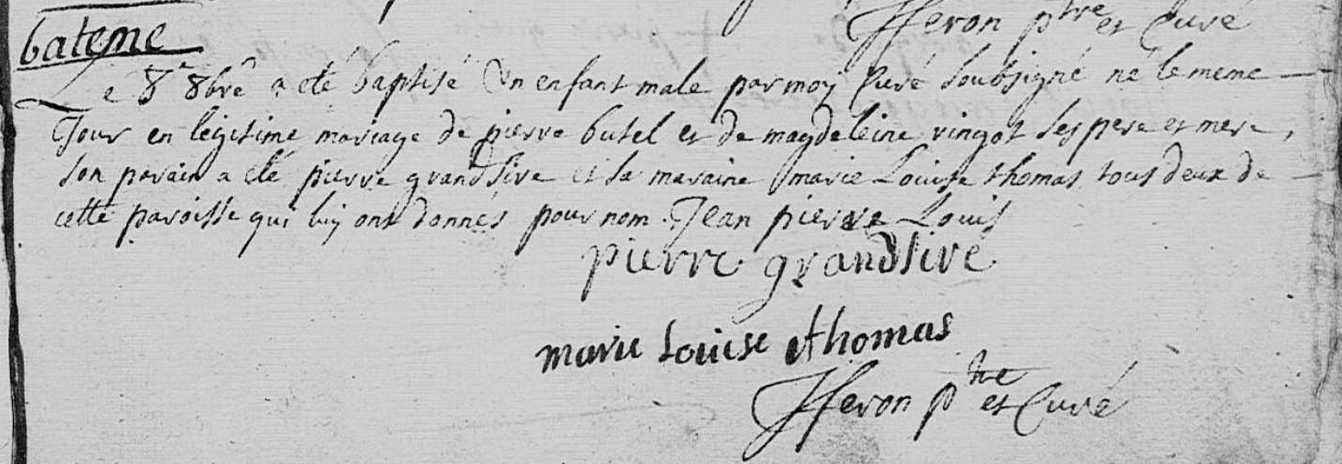 JfFeron ptre et Curé
bateme
Le 8e 8bre a eté baptisé Un enfant male par moy Curé soubsigné né le meme
Jour en légitime mariage de pierre butel et de magdeleine vingot ses pere et mere,
son parain a eté pierre grandsire et sa maraine marie Louise thomas tous deux de
cette paroisse qui luy ont donnés pour nom Jean pierre Louis
pierre grandsire
marie Louise thomas
JfFeron ptre et Curé